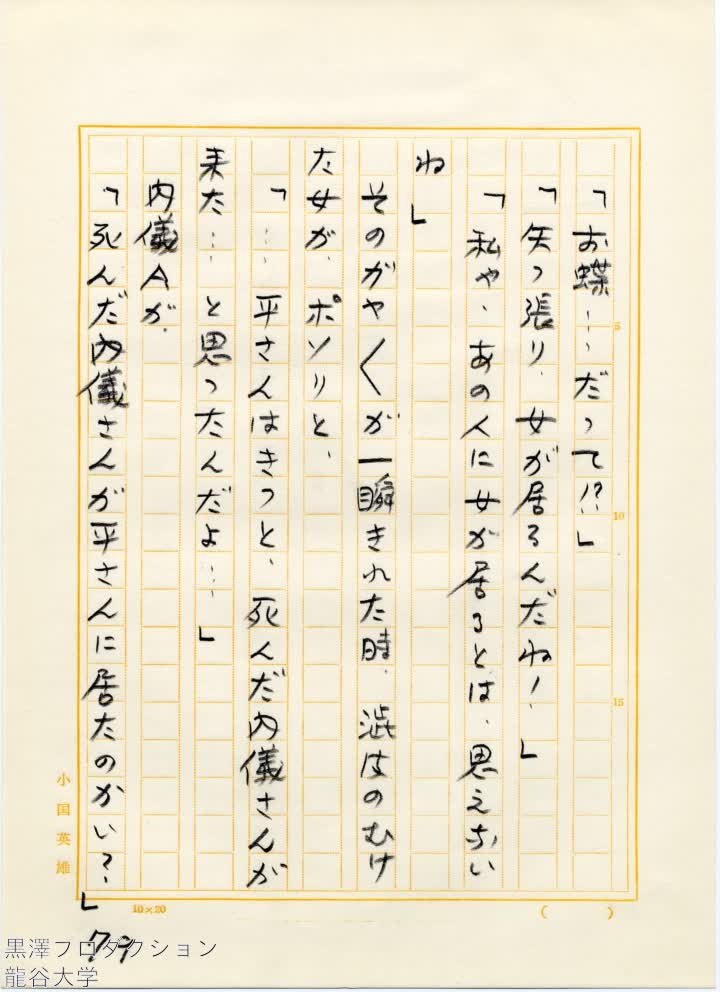 「お蝶……だって!?」
「矢っ張り、女が居るんだね！」
「私や、あの人に女が居るとは、思えない
ね」
そのがや〱が一瞬きれた時、澁皮のむけ
た女が、ポソリと、
「……平さんはきっと、死んだ内儀さんが
来た……と思ったんだよ……」
内儀Aが、
「死んだ内儀さんが平さんに居たのかい？」
5
10
15
小国英雄
10×20
(　)
黒澤プロダクション
龍谷大学